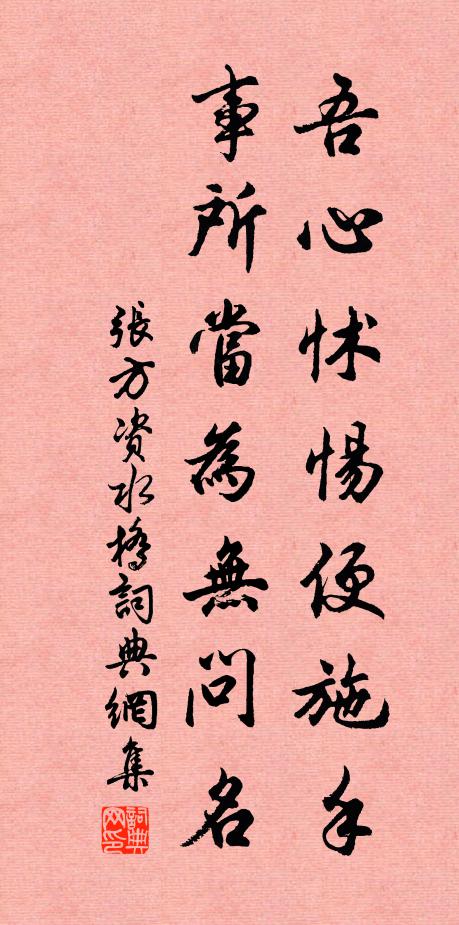 吾心怵惕便施手
事所當為無問名
張方資水橋詞典網集
詞典网印